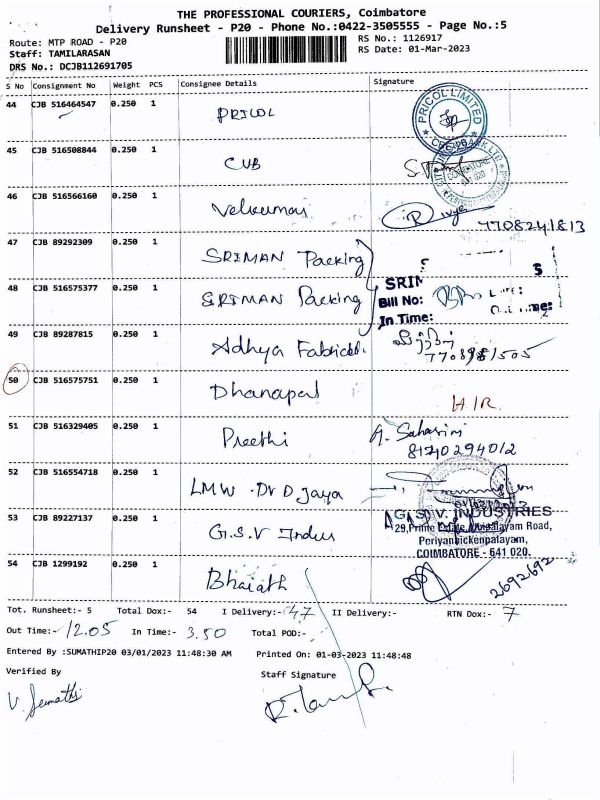 THE PROFESSIONAL COURIERS, Coimbatore
Delivery Runsheet - P20 - Phone No.:0422-3505555 - Page No.:5
Route: MTP ROAD - P20
RS No.: 1126917
Staff: TAMILARASAN
RS Date: 01-Mar-2023
DRS No.: DCJB112691705
S No Consignment No Weight PCS Consignee Details Signature
44 CJB 516464547 0.250 1 PRICOL
PRICOL LIMITED
45 CJB 516508844 0.250 1 CUB
COIMBATORE
46 CJB 516566160 0.250 1 Velkumar Divya
7708241813
47 CJB 89292309 0.250 1 SRIMAN Packing
48 CJB 516575377 0.250 1 SRIMAN Packing
Bill No:
In Time:
49 CJB 89287815 0.250 1 Adhya
50 CJB 516575751 0.250 1 Dhanapal
51 CJB 516329405 0.250 1 Preethi
8170294012
52 CJB 516554718 0.250 1 LMW . Dr D Jaya
53 CJB 89227137 0.250 1 G.S.V Indus
G.S.V. INDUSTRIES
Road,
Periyanaickenpalayam,
COIMBATORE - 641 020.
54 CJB 1299192 0.250 1
2692692
Tot. Runsheet:- 5 Total Dox:- 54 I Delivery:- 47 II Delivery:- RTN Dox:- 7
Out Time:- 12.05 In Time:- 3.50 Total POD:-
Entered By :SUMATHIP20 03/01/2023 11:48:30 AM Printed On: 01-03-2023 11:48:48
Verified By Staff Signature
V. Sumathi